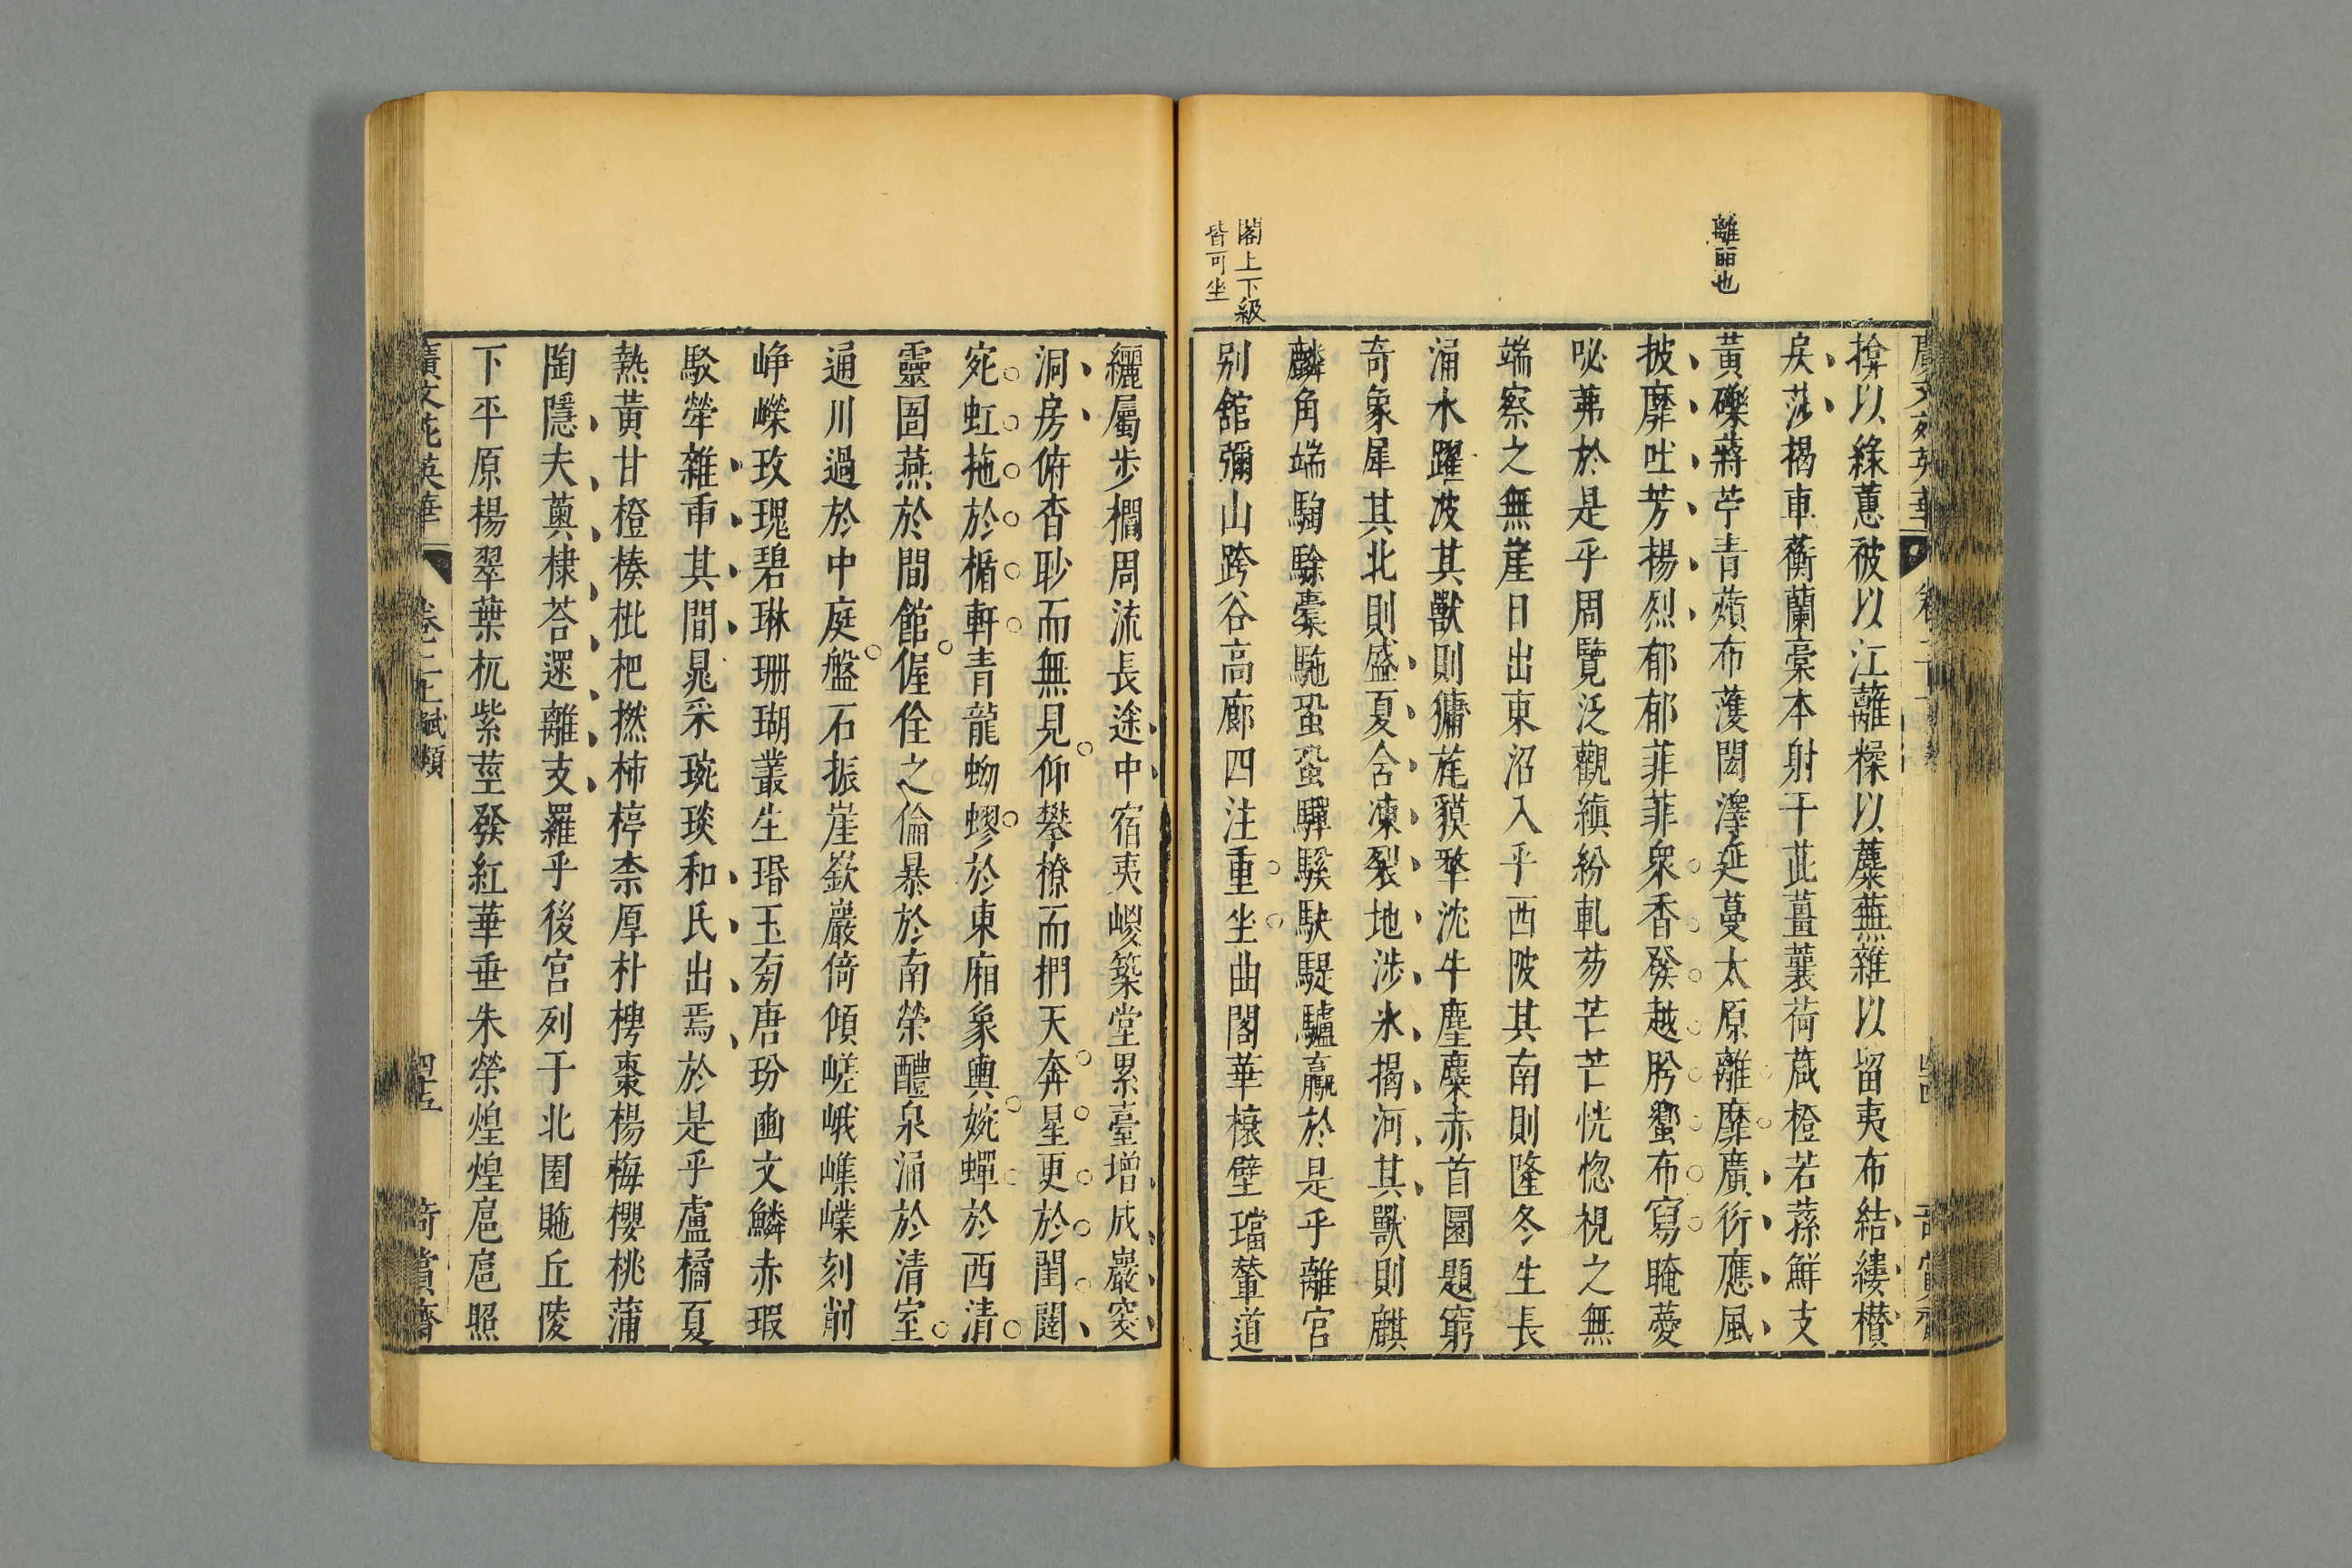 離麗也
閣上下級
皆可坐
揜以綠蕙被以江蘺糅以蘪蕪雜以留夷布結縷欑
戾莎揭車蘅蘭槀本射干茈薑蘘荷葴橙若蓀鮮支
黃礫蔣芧青薠布濩閎澤延蔓太原離靡廣衍應風
披靡吐芳揚烈郁郁菲菲衆香發越肹蠁布寫晻薆
咇茀於是乎周覽泛觀縝紛軋芴芒芒恍惚視之無
端察之無崖日出東沼入乎西陂其南則隆冬生長
涌水躍波其獸則㺎旄貘犛沈牛麈麋赤首圜題窮
奇象犀其北則盛夏含凍裂地涉氷揭河其獸則麒
麟角端騊駼橐駞蛩蛩驒騱駃騠驢臝於是乎離宮
别館彌山跨谷高廊四注重坐曲閣華榱壁璫輦道
纚屬步櫩周流長途中宿夷嵕築堂累臺增成巖窔
洞房俯杳眇而無見仰攀橑而捫天奔星更於閨闥
宛虹拖於楯軒青龍蚴蟉於東廂象輿婉蟬於西清
靈圄燕於閒館偓佺之倫暴於南榮醴泉涌於清室
通川過於中庭盤石振崖嶔巖倚傾嵯峨㠎嶫刻削
崢嶸玫瑰碧琳珊瑚叢生瑉玉旁唐玢豳文鱗赤瑕
駁犖雜臿其間晁采琬琰和氏出焉於是乎盧橘夏
熟黃甘橙楱枇杷橪柿楟柰厚朴梬棗楊梅櫻桃蒲
陶隱夫薁棣荅遝離支羅乎後宮列于北園貤丘陵
下平原揚翠葉杌紫莖發紅華垂朱榮煌煌扈扈照
廣文苑英華
卷二十賦類
四五
奇賞齋